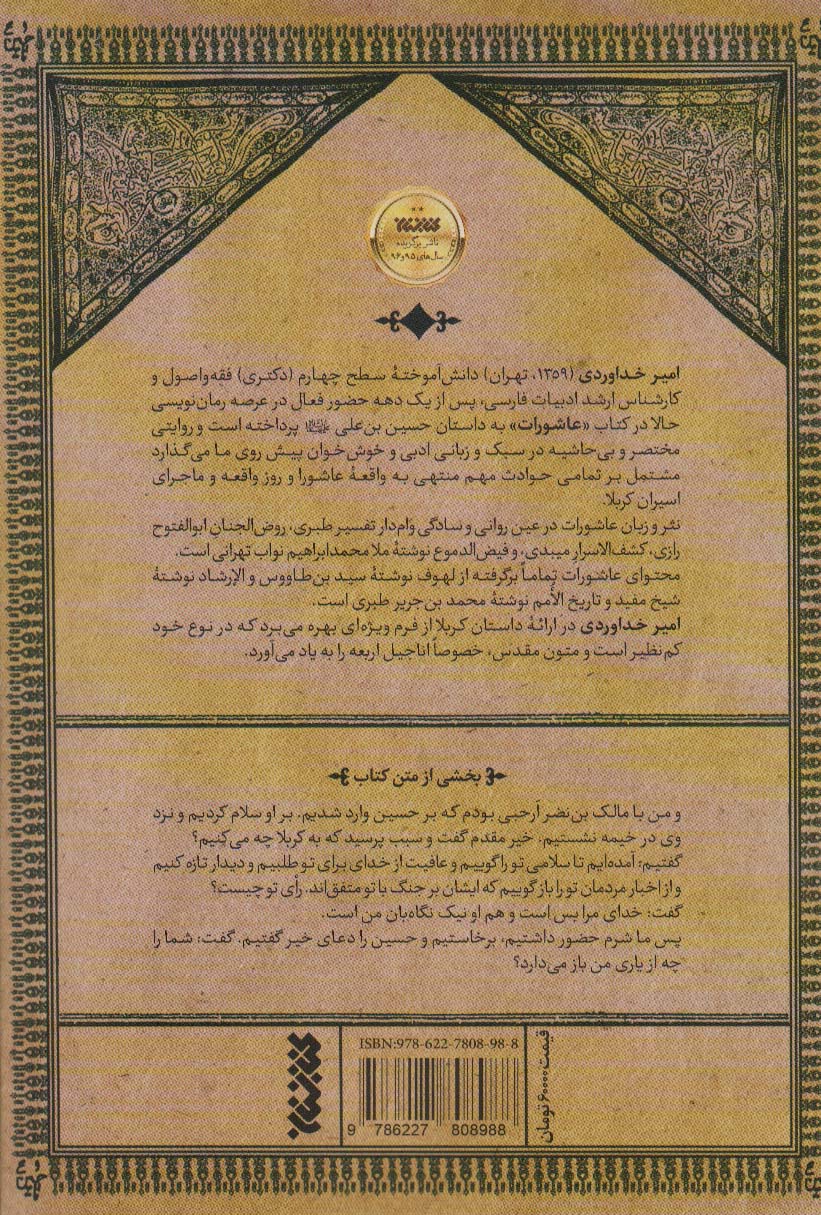 کتابستان
ناشر برگزیده
سال‌های ۹۵ و ۹۶
امیر خداوردی (۱۳۵۹، تهران) دانش‌آموختهٔ سطح چهارم (دکتری) فقه‌واصول و
کارشناس ارشد ادبیات فارسی، پس از یک دهه حضور فعال در عرصه رمان‌نویسی
حالا در کتاب «عاشورات» به داستان حسین بن‌علی علیه‌السلام پرداخته است و روایتی
مختصر و بی‌حاشیه در سبک و زبانی ادبی و خوش‌خوان پیش روی ما می‌گذارد
مشتمل بر تمامی حوادث مهم منتهی به واقعهٔ عاشورا و روز واقعه و ماجرای
اسیران کربلا.
نثر و زبان عاشورات در عین روانی و سادگی وام‌دار تفسیر طبری، روض‌الجنانِ ابوالفتوح
رازی، کشف‌الاسرارِ میبدی، و فیض‌الدموع نوشتهٔ ملا محمدابراهیم نواب تهرانی است.
محتوای عاشورات تماماً برگرفته از لهوف نوشتهٔ سید بن‌طاووس و الإرشاد نوشتهٔ
شیخ مفید و تاریخ الأمم نوشتهٔ محمد بن‌جریر طبری است.
امیر خداوردی در ارائهٔ داستان کربلا از فرم ویژه‌ای بهره می‌برد که در نوع خود
کم‌نظیر است و متون مقدس، خصوصاً اناجیل اربعه را به یاد می‌آورد.
بخشی از متن کتاب
و من با مالک بن‌نضر اَرحبی بودم که بر حسین وارد شدیم. بر او سلام کردیم و نزد
وی در خیمه نشستیم. خیر مقدم گفت و سبب پرسید که به کربلا چه می‌کنیم؟
گفتیم: آمده‌ایم تا سلامی تو را گوییم و عافیت از خدای برای تو طلبیم و دیدار تازه کنیم
و از اخبار مردمان تو را باز گوییم که ایشان بر جنگ با تو متفق‌اند. رأی تو چیست؟
گفت: خدای مرا بس است و هم او نیک نگاه‌بان من است.
پس ما شرم حضور داشتیم، برخاستیم و حسین را دعای خیر گفتیم. گفت: شما را
چه از یاری من باز می‌دارد؟
کتابستان
ISBN:978-622-7808-98-8
9 786227 808988
قیمت ۶۰۰۰۰ تومان